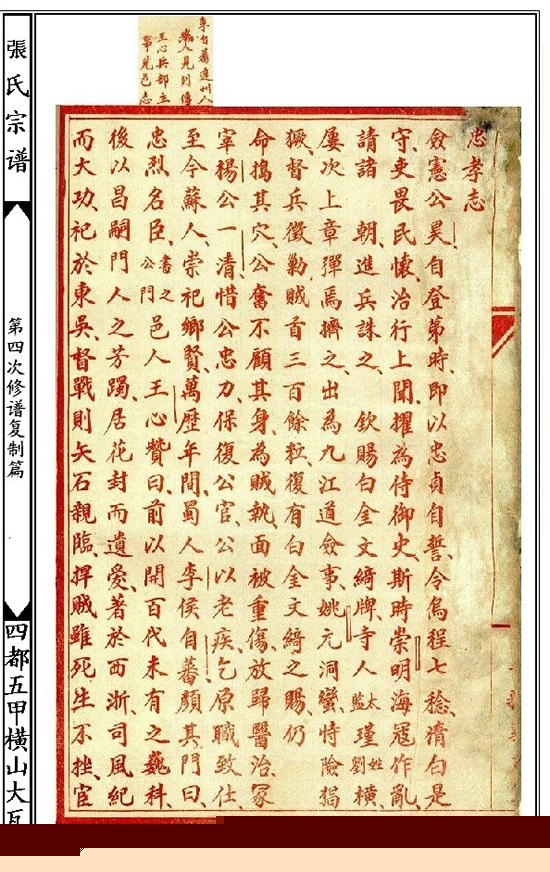 李自蕃達州人
人見列傳
王心兵部主
事見邑志
忠孝志
僉憲公昊自登第時、即以忠貞自誓、令烏程七稔、清白是
守、吏畏民懷、治行上聞、擢為侍御史、斯時崇明海寇作亂、
請諸 朝、進兵誅之、 欽賜白金文綺牌、寺人太監瑾姓劉橫、
屢次上章彈焉、擠之、出為九江道僉事、姚元洞蠻恃險猖
獗、督兵徵勦賊首三百餘粒、復有白金文綺之賜、仍
命搗其穴、公奮不顧其身、為賊執、面被重傷、放歸醫治、冢
宰楊公一清、惜公忠力、保復公官、公以老疾乞原職致仕、
至今蘇人崇祀鄉賢、萬歷年間、蜀人李侯自蕃顏其門曰、
忠烈名臣、書之公門邑人王心贊曰、前以開百代未有之巍科、
後以昌嗣門人之芳躅、居花封而遺愛、著於西浙、司風紀
而大功、祀於東吳、督戰則矢石親臨、捍賊雖死生不挫、宦
張氏宗谱
第四次修谱复制篇
四都五甲橫山大